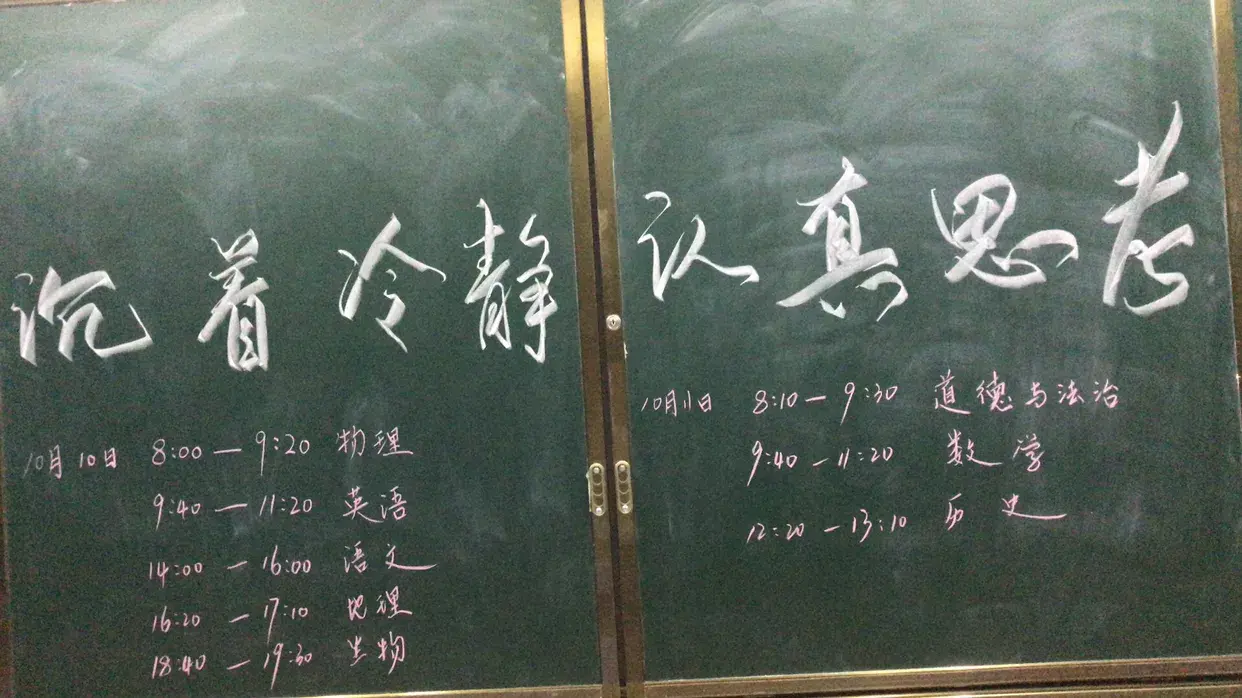 沉着冷静 认真思考
10月10日 8:00—9:20 物理
9:40—11:20 英语
14:00—16:00 语文
16:20—17:10 地理
18:40—19:30 生物
10月11日 8:10—9:30 道德与法治
9:40—11:20 数学
12:20—13:10 历史